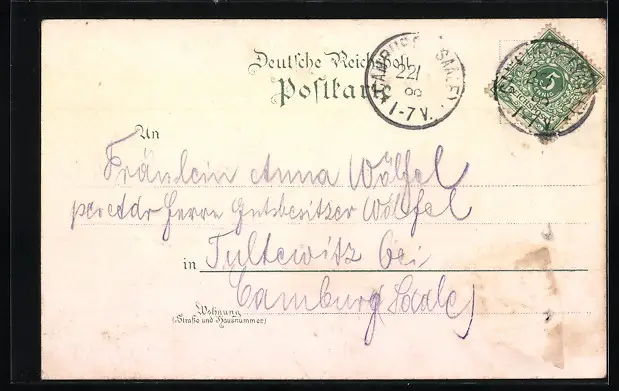 Deutsche Reichspost
Postkarte
CAMBURG (SAALE)
22/
1-7 V.
5
An
Fräulein Anna Wölfel
per addr Herrn Gutsbesitzer Wölfel
in Tultewitz bei
Camburg (Saale)
Wohnung
(Straße und Hausnummer)